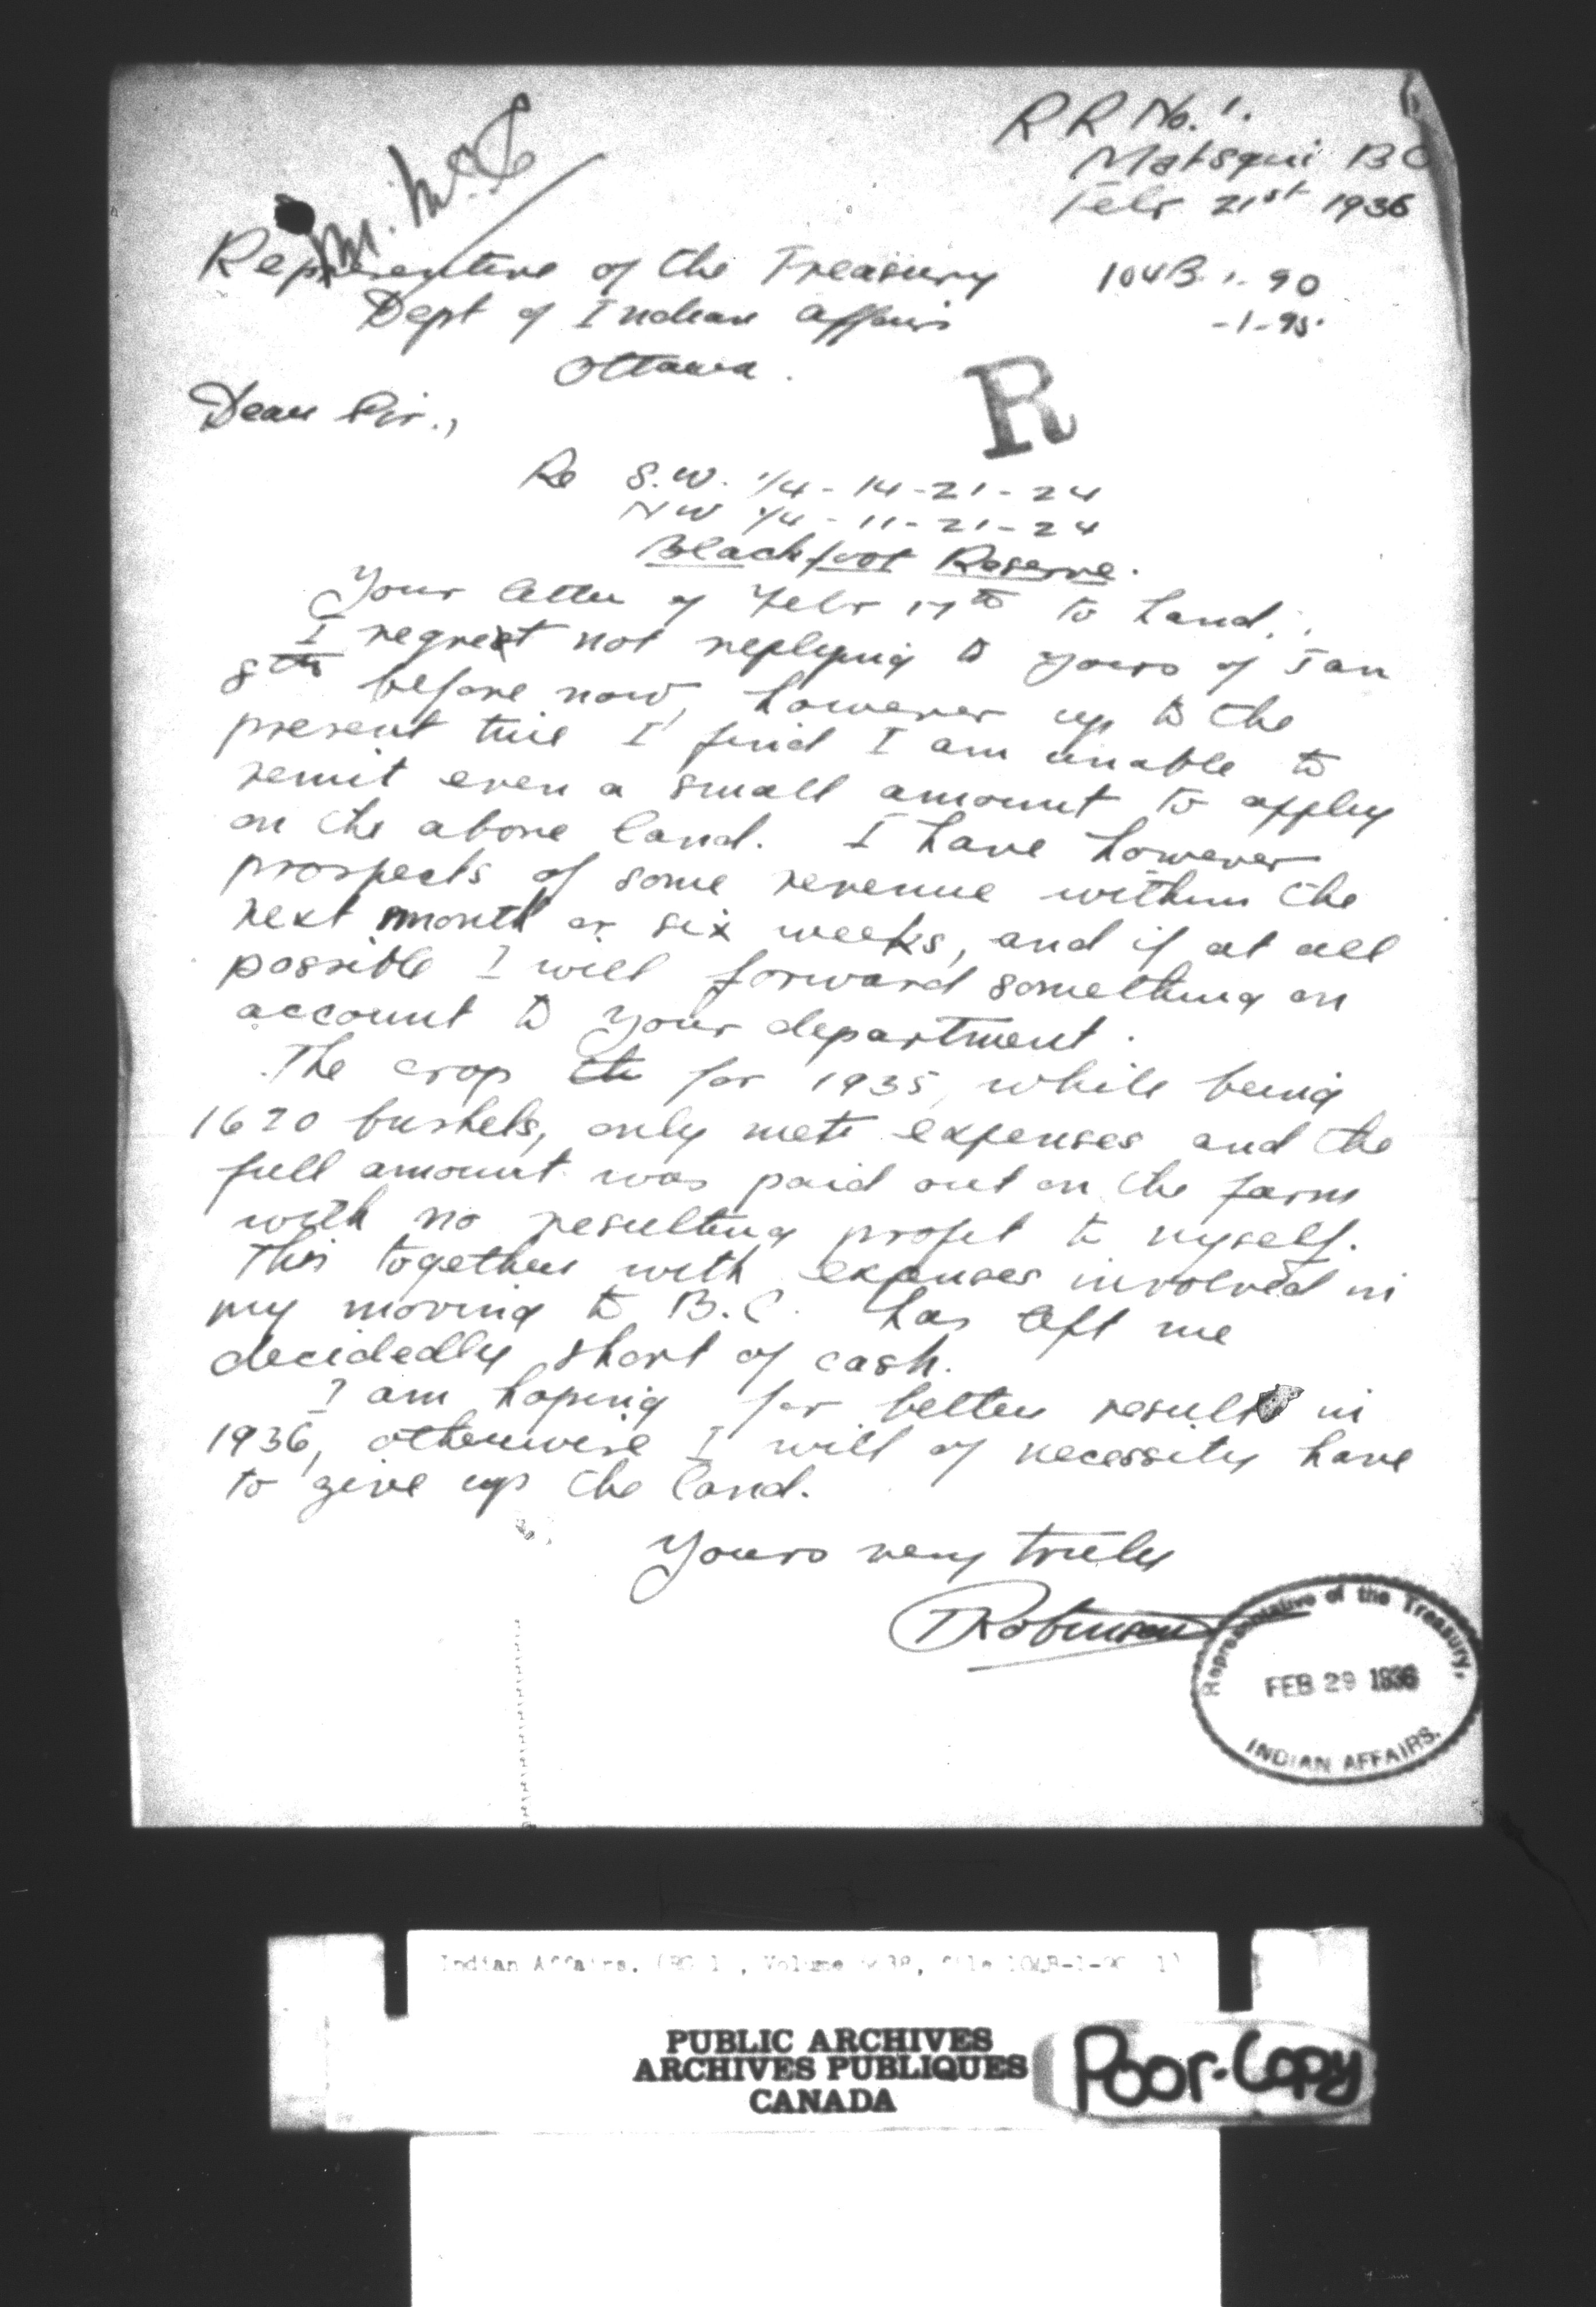 R R No. 1.
Matsqui B C
Febr 21st 1936
M. McC
Representive of the Treasury
104B.1.90
Dept of Indian Affairs
-1-95.
Ottawa.
Dear Sir.,
R
Re S.W. 1/4 - 14 - 21 - 24
NW 1/4 - 11 - 21 - 24
Blackfoot Reserve.
Your letter of Febr 17th to hand.
I regret not replying to yours of Jan
8th before now, however up to the
present time I find I am unable to
remit even a small amount to apply
on the above land. I have however
prospects of some revenue within the
next month or six weeks, and if at all
possible I will forward something on
account to your department.
The crop for 1935, while being
1620 bushels, only met expenses and the
full amount was paid out on the farm
with no resulting profit to myself.
This together with expenses involved in
my moving to B.C. has left me
decidedly short of cash.
I am hoping for better results in
1936, otherwise I will of necessity have
to give up the land.
Yours very truly
T Robinson
Representative of the Treasury,
FEB 29 1936
INDIAN AFFAIRS.
Indian Affairs. (RG 1 , Volume , file 104B-1-90 1)
PUBLIC ARCHIVES
ARCHIVES PUBLIQUES
CANADA
Poor-Copy